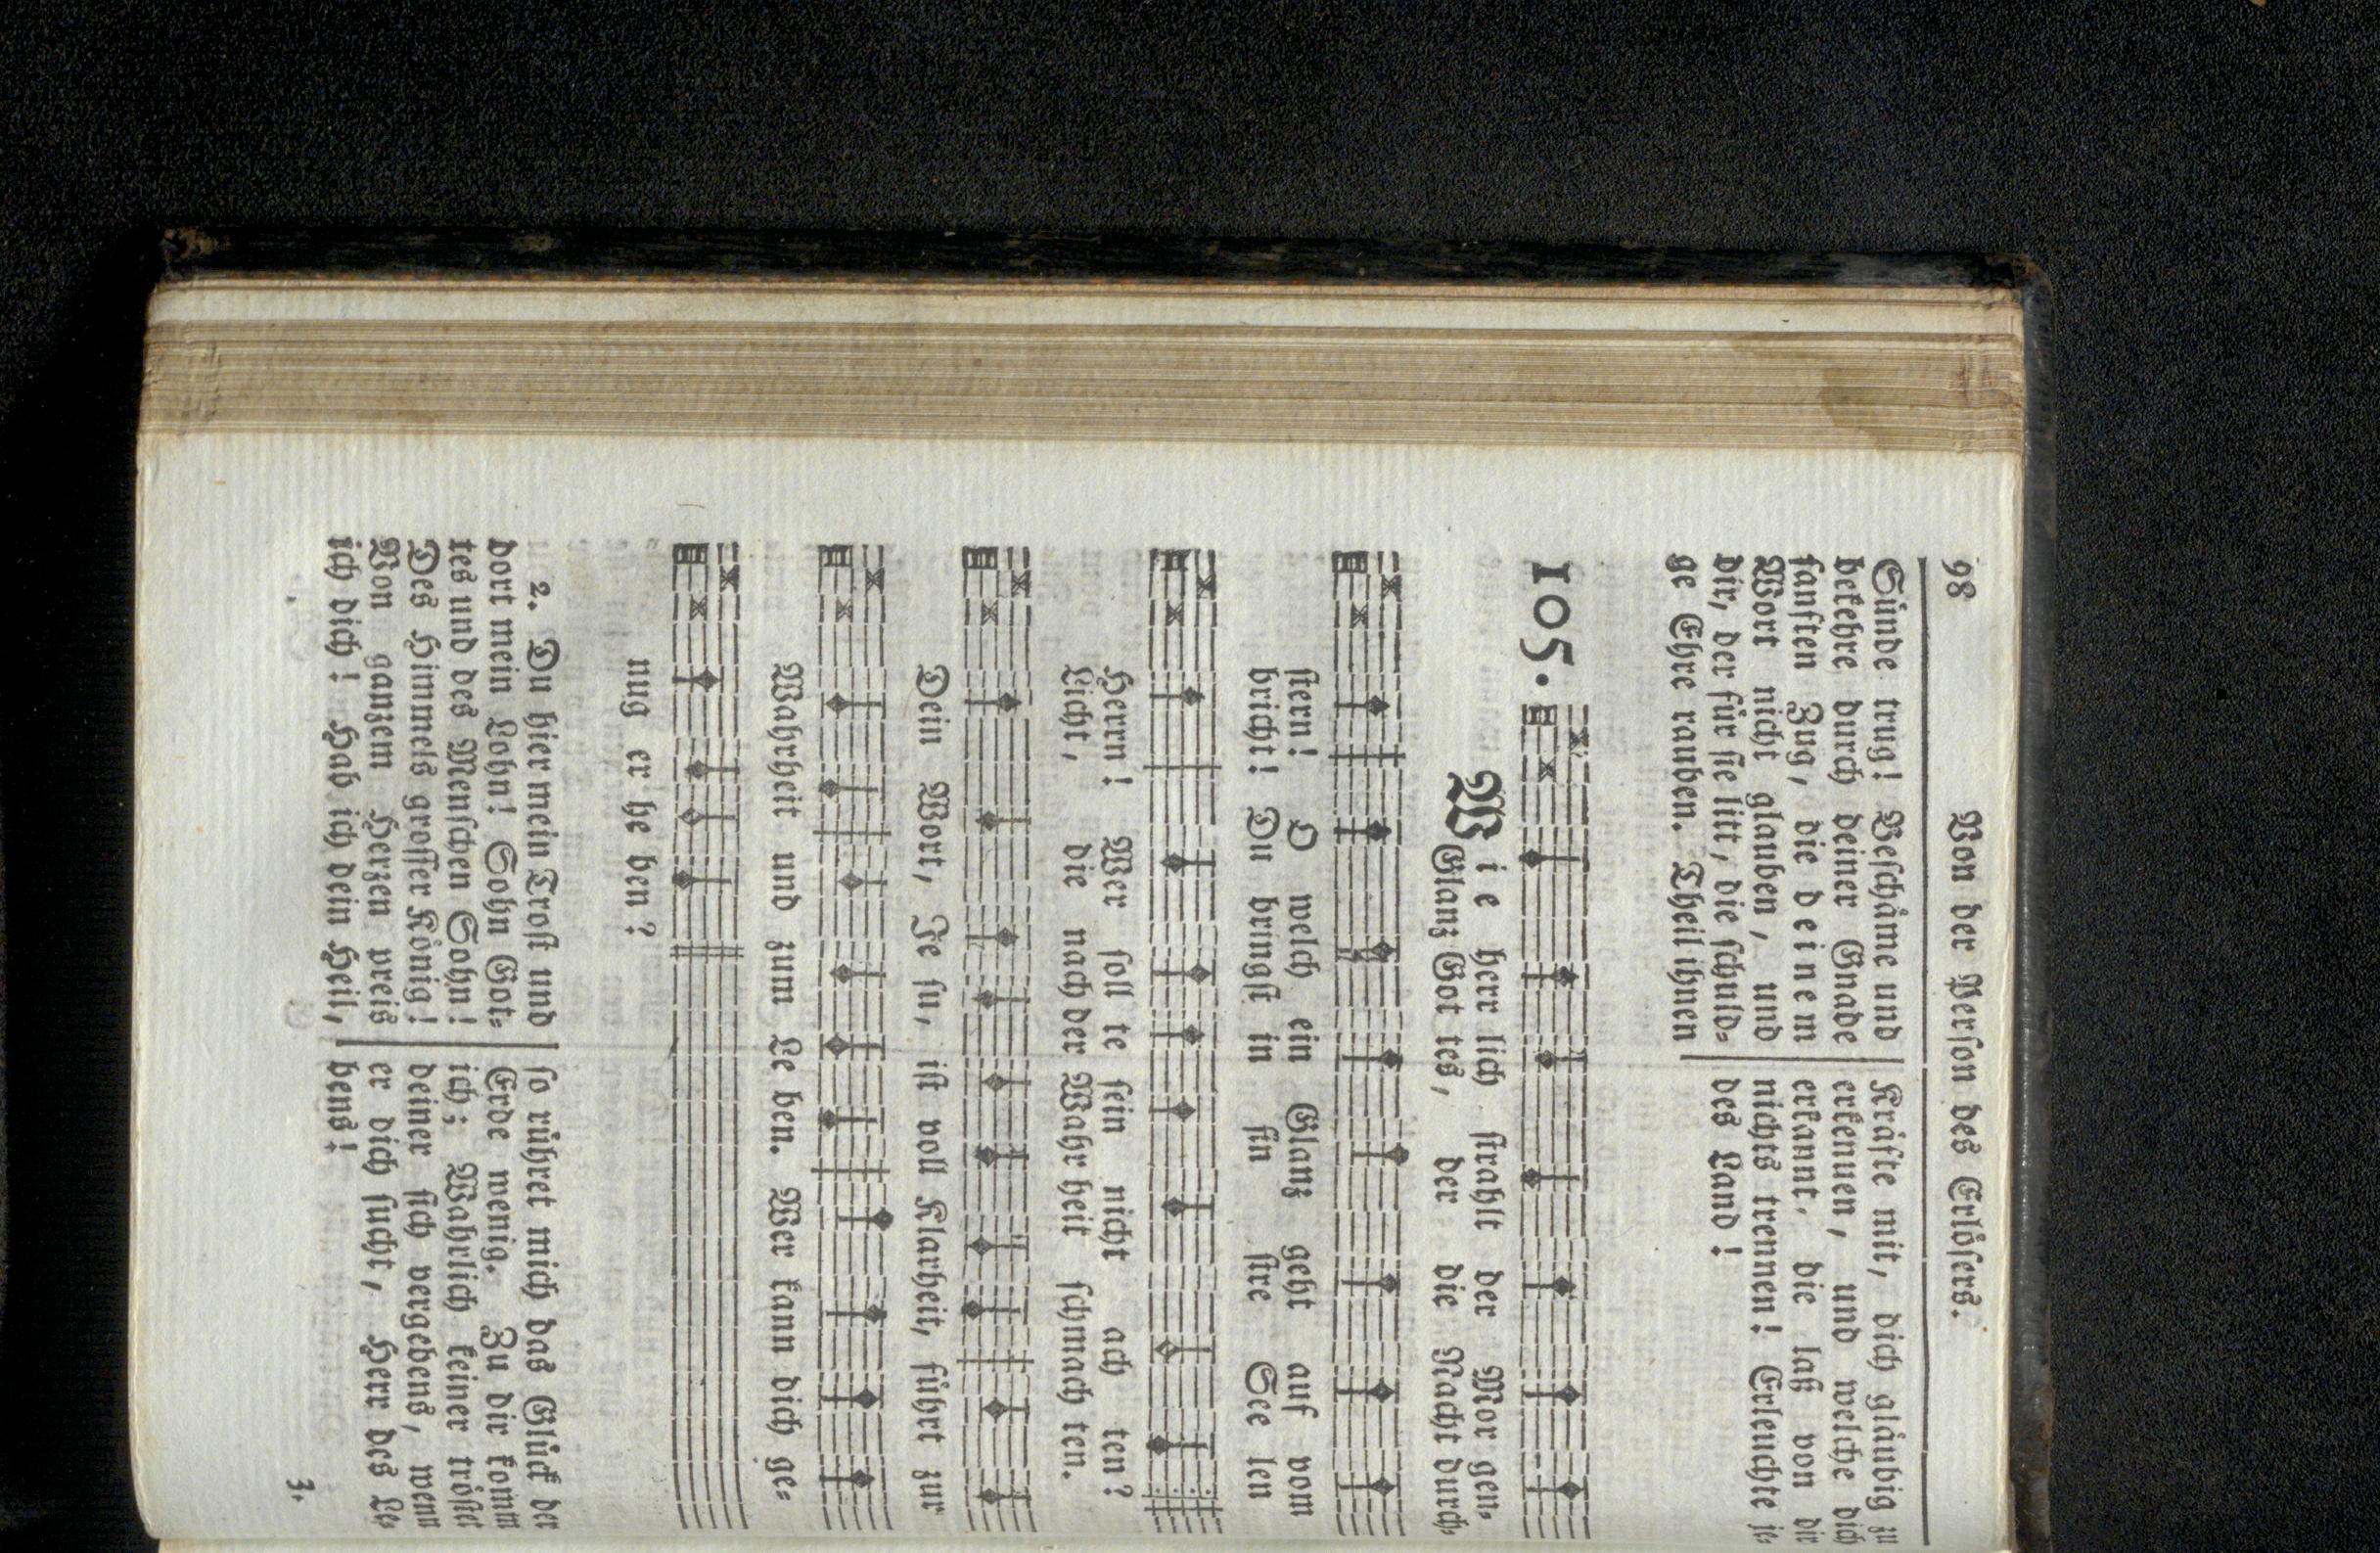 98 Von der Person des Erlösers.
Sünde trug! Beschäme und
bekehre durch deiner Gnade
sanften Zug, die deinem
Wort nicht glauben, und
dir, der für sie litt, die schuld-
ge Ehre rauben. Theil ihnen
Kräfte mit, dich gläubig zu
erkennen, und welche dich
erkannt, die laß von dir
nichts trennen! Erleuchte je-
des Land!
105.
Wie herr lich strahlt der Mor gen-
Glanz Got tes, der die Nacht durch-
stern! O welch ein Glanz geht auf vom
bricht! Du bringst in fin stre See len
Herrn! Wer soll te sein nicht ach ten?
Licht, die nach der Wahr heit schmach ten.
Dein Wort, Je su, ist voll Klarheit, führt zur
Wahrheit und zum Le ben. Wer kann dich ge-
nug er he ben?
2. Du hier mein Trost und
dort mein Lohn! Sohn Got-
tes und des Menschen Sohn!
Des Himmels grosser König!
Von ganzem Herzen preis
ich dich! Hab ich dein Heil,
so rühret mich das Glück der
Erde wenig. Zu dir komm
ich; Wahrlich keiner tröstet
deiner sich vergebens, wenn
er dich sucht, Herr des Le-
bens!
3.